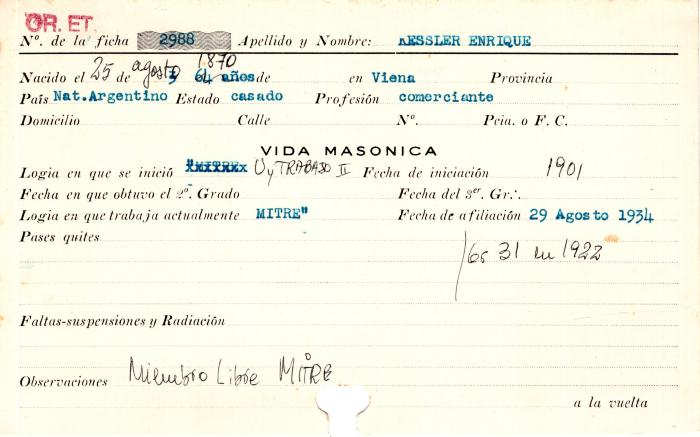 OR. ET.
Nº. de la ficha 2988 Apellido y Nombre: KESSLER ENRIQUE
Nacido el 25 de agosto 1870 64 años de en Viena Provincia
País Nat. Argentino Estado casado Profesión comerciante
Domicilio Calle Nº. Pcia. o F. C.
VIDA MASONICA
Logia en que se inició "MITREx U y TRABAJO II Fecha de iniciación 1901
Fecha en que obtuvo el 2º. Grado Fecha del 3er. Gr∴.
Logia en que trabaja actualmente MITRE" Fecha de afiliación 29 Agosto 1934
Pases quites
31 en 1922
Faltas-suspensiones y Radiación
Observaciones Miembro Libre MITRE
a la vuelta